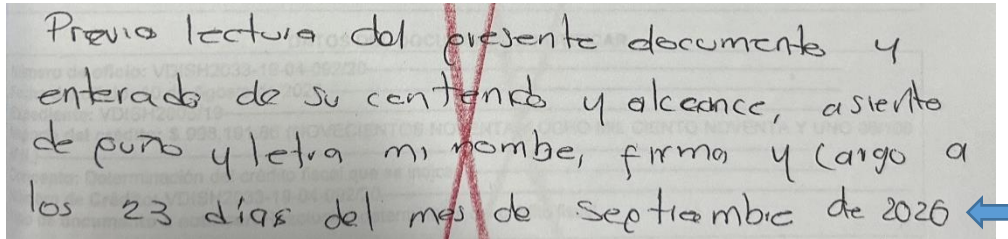 Previa lectura del presente documento y
enterado de su contenido y alceance, asiento
de puño y letra mi nombe, firma y Cargo a
los 23 días del mes de Septiembre de 2026